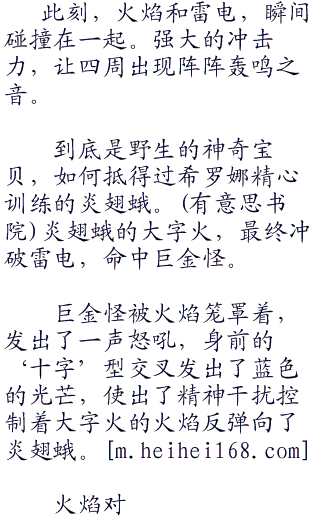 此刻，火焰和雷电，瞬间
碰撞在一起。强大的冲击
力，让四周出现阵阵轰鸣之
音。
到底是野生的神奇宝
贝，如何抵得过希罗娜精心
训练的炎翅蛾。(有意思书
院)炎翅蛾的大字火，最终冲
破雷电，命中巨金怪。
巨金怪被火焰笼罩着，
发出了一声怒吼，身前的
‘十字’型交叉发出了蓝色
的光芒，使出了精神干扰控
制着大字火的火焰反弹向了
炎翅蛾。[m.heihei168.com]
火焰对